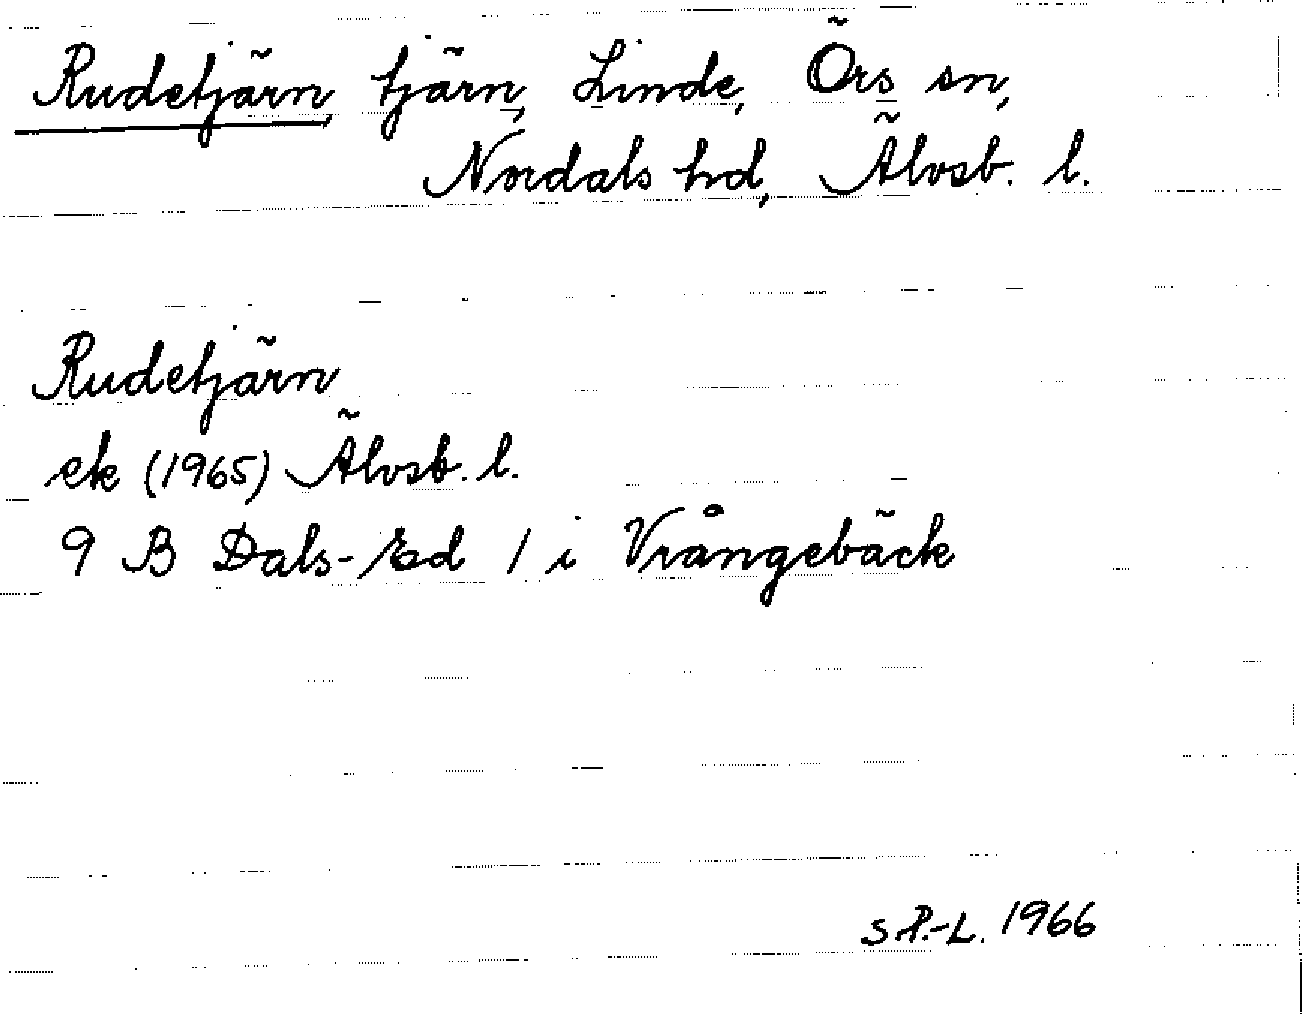 Rudetjärn, tjärn, Linde, Örs sn,
Nordals hd, Älvsb. l.
Rudetjärn
ek (1965) Älvsb. l.
9 B Dals-Ed 1 i Vrångebäck
S.P.-L. 1966